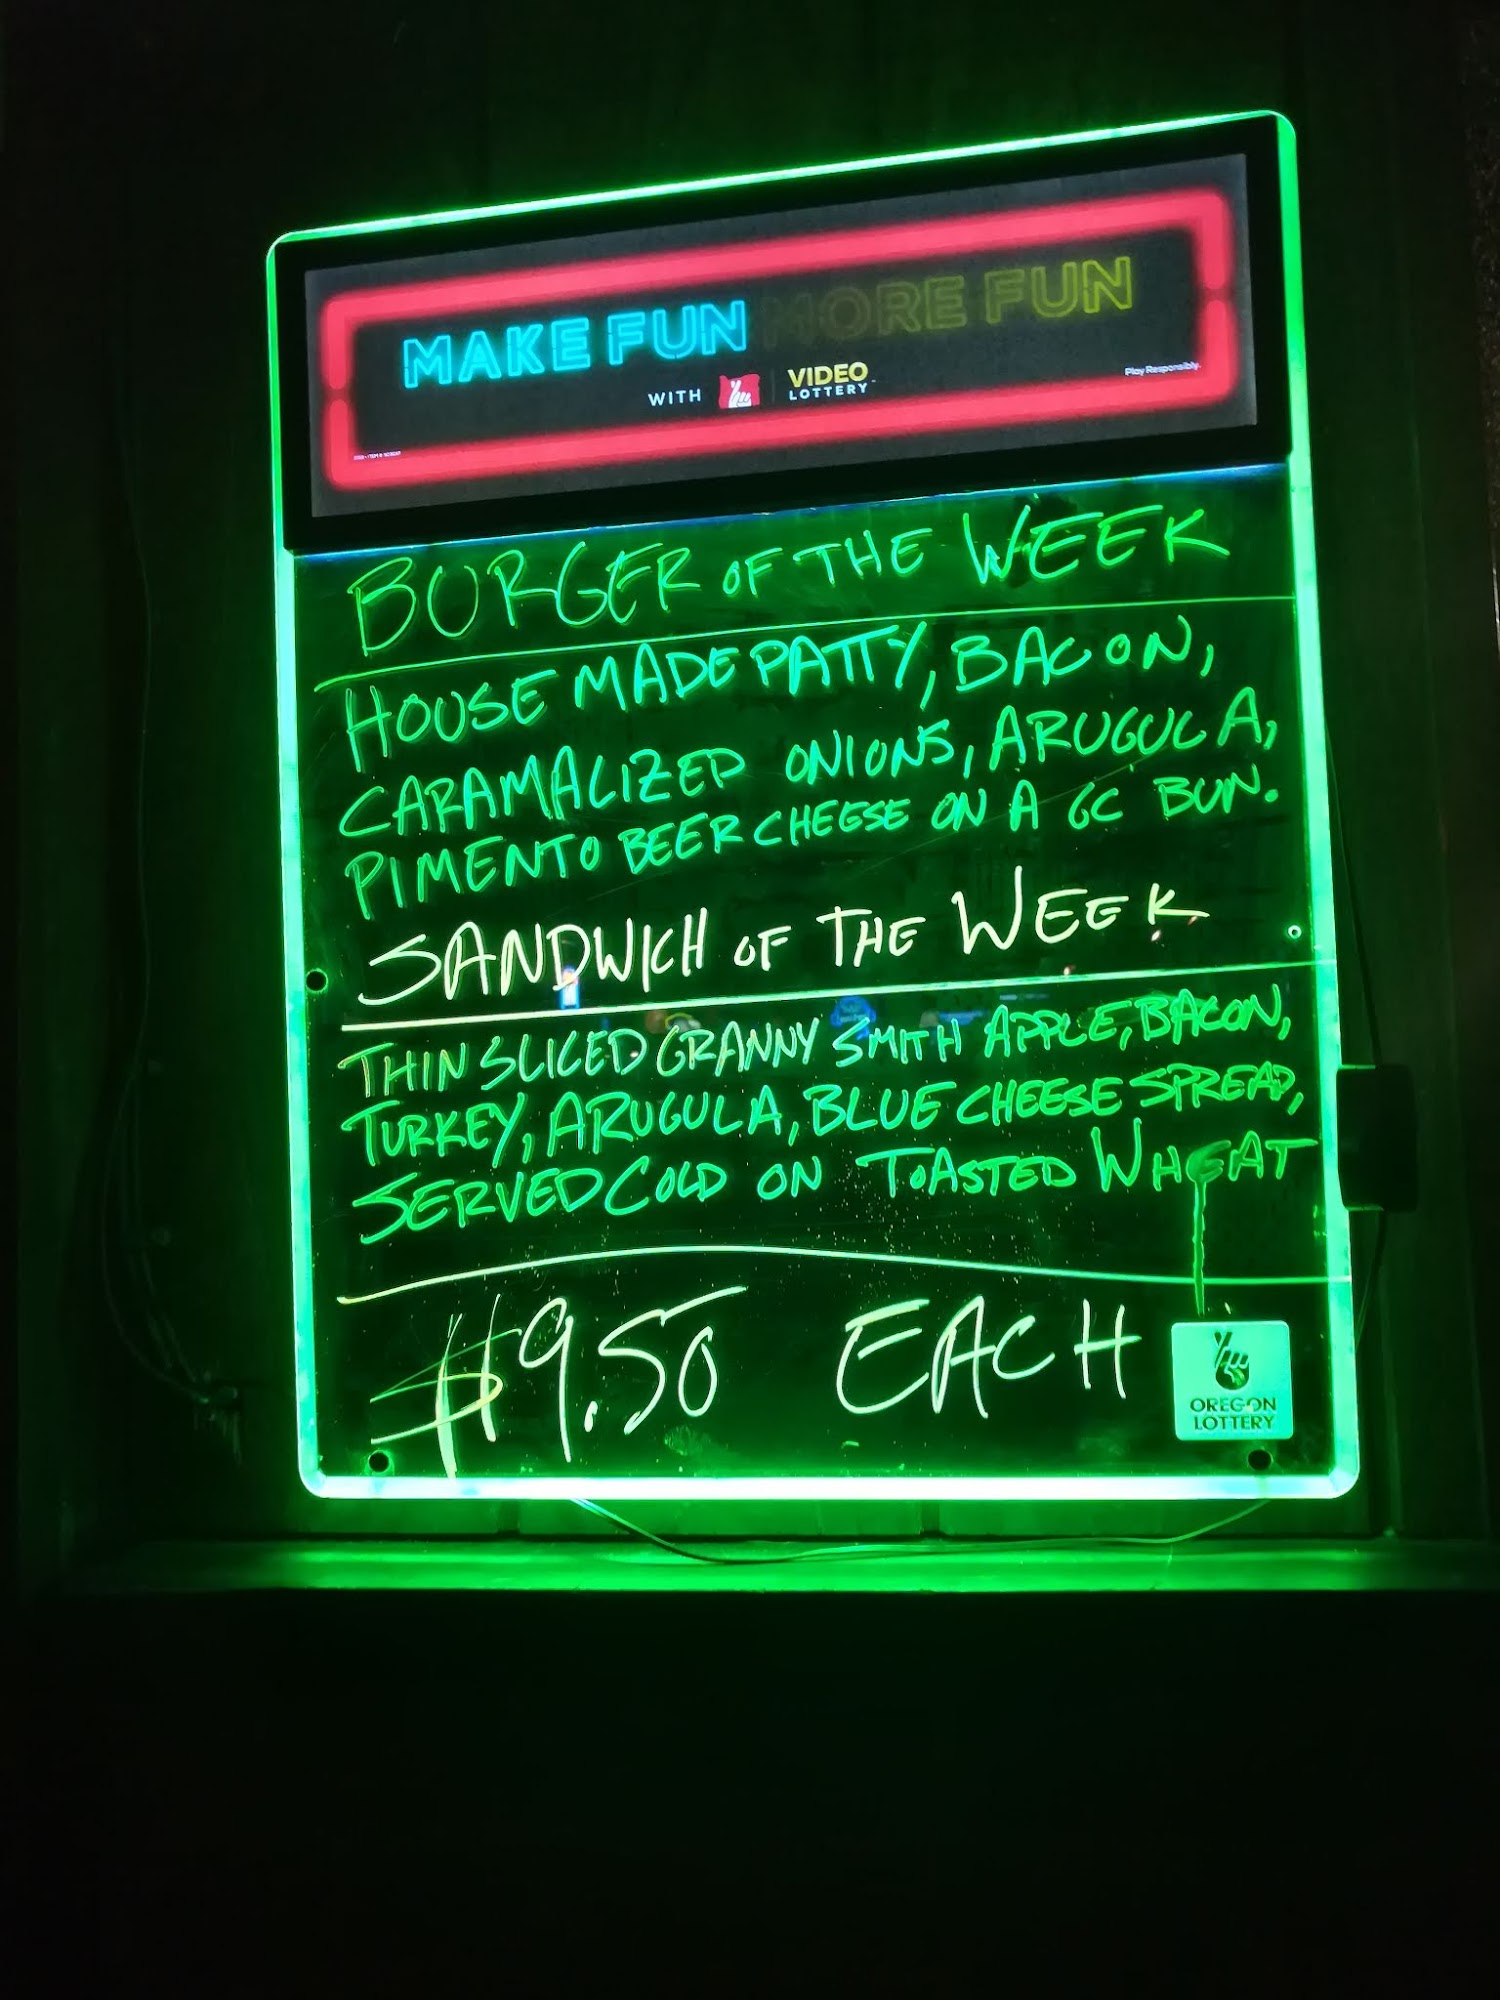 MAKE FUN MORE FUN
WITH VIDEO LOTTERY
Play Responsibly.
BURGER OF THE WEEK
HOUSE MADE PATTY, BACON,
CARAMALIZED ONIONS, ARUGULA,
PIMENTO BEER CHEESE ON A GC BUN.
SANDWICH OF THE WEEK
THIN SLICED GRANNY SMITH APPLE, BACON,
TURKEY, ARUGULA, BLUE CHEESE SPREAD,
SERVED COLD ON TOASTED WHEAT
$9.50 EACH
OREGON
LOTTERY